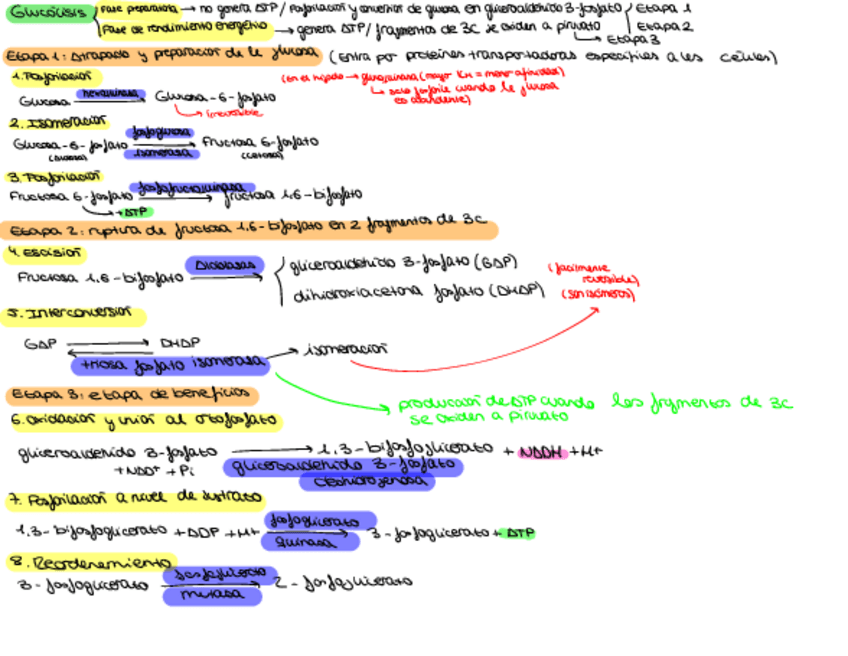 Glucólisis
Fase preparatoria → no genera ATP / Fosforilación y conversión de glucosa en gliceroaldehido 3-fosfato
Etapa 1
Etapa 2
Fase de rendimiento energético → genera ATP / fragmentos de 3C se oxiden a piruvato
→ Etapa 3
Etapa 1: Atrapado y preparación de la glucosa (Entra por proteínas transportadoras específicas a las células)
1. Fosforilación
(en el hígado → glucoquinasa (mayor KM = menor afinidad)
↳ solo fosforila cuando la glucosa
es abundante)
Glucosa hexoquinasa Glucosa-6-fosfato
↳ irreversible
2. Isomeración
Glucosa-6-fosfato fosfoglucosa isomerasa Fructosa 6-fosfato
(aldosa) (cetosa)
3. Fosforilación
Fructosa 6-fosfato fosfofructoquinasa fructosa 1,6-bifosfato
+ATP
Etapa 2: ruptura de fructosa 1,6-bifosfato en 2 fragmentos de 3C
4. Escisión
Fructosa 1,6-bifosfato Aldolasas
gliceroaldehido 3-fosfato (GAP)
dihidroxiacetona fosfato (DHAP)
(facilmente
reversible)
(son isómeros)
5. Interconversión
GAP DHAP
triosa fosfato isomerasa → isomeración
Etapa 3: etapa de beneficios
producción de ATP cuando los fragmentos de 3C
se oxiden a piruvato
6. Oxidación y unión al ortofosfato
gliceroaldehido 3-fosfato → 1,3-bifosfoglicerato + NADH + H+
+NAD+ + Pi gliceroaldehido 3-fosfato
deshidrogenasa
7. Fosforilación a nivel de sustrato
1,3-bifosfoglicerato + ADP + H+ fosfoglicerato quinasa 3-fosfoglicerato + ATP
8. Reordenamiento
3-fosfoglicerato fosfoglicerato mutasa 2-fosfoglicerato